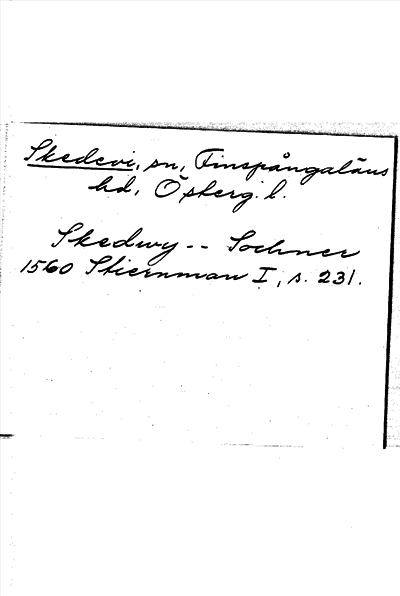 Skedevi, sn, Finspångaläns
hd, Österg. l.
Skedwy -- Sochner
1560 Stiernman I, s. 231.